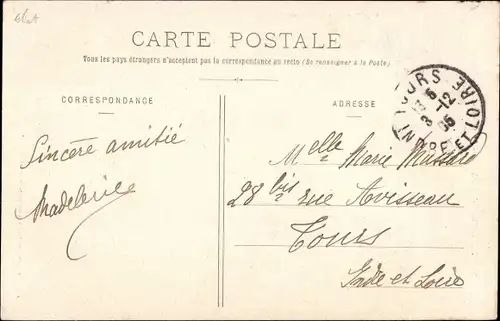 CARTE POSTALE
Tous les pays étrangers n'acceptent pas la correspondance au recto (Se renseigner à la Poste)
CORRESPONDANCE
ADRESSE
TOURS
INDRE ET LOIRE
3 -12
05
Sincère amitié
Madeleine
Melle Marie
28 bis rue Avisseau
Tours
Indre et Loire